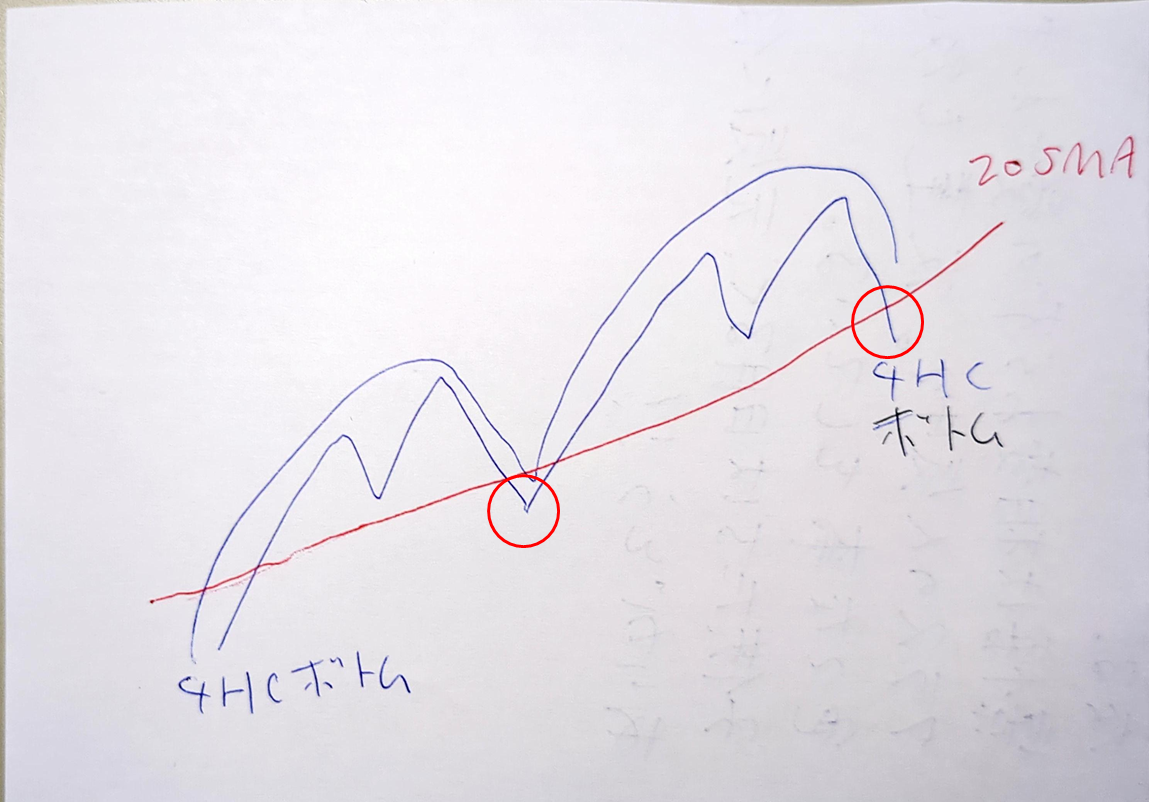 20SMA
4HC
ボトム
4HCボトム